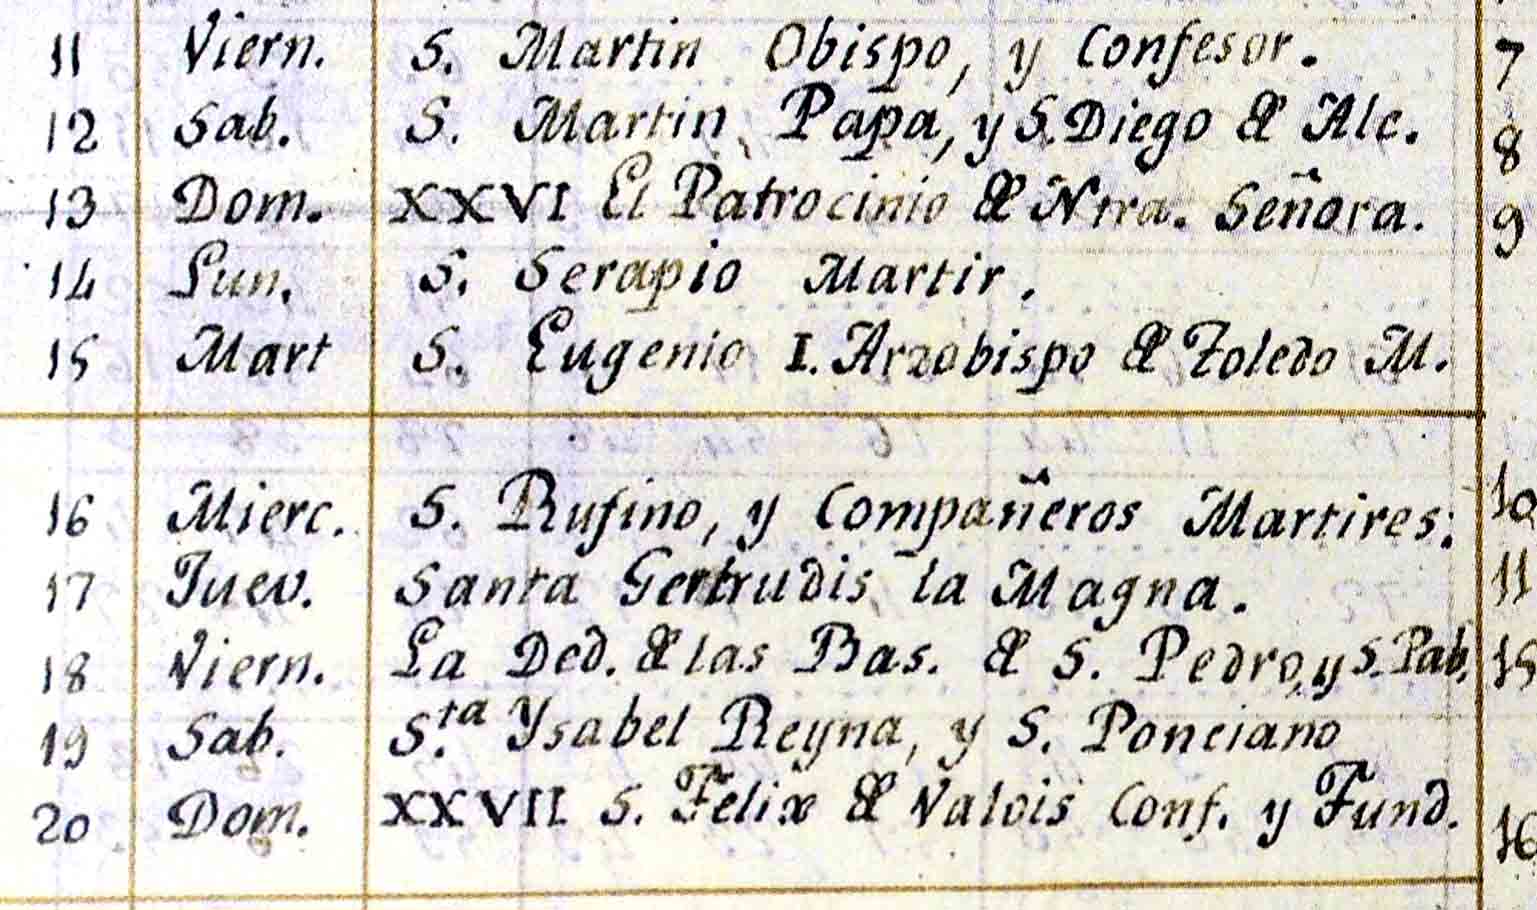 11 Viern. S. Martin Obispo, y Confesor. 7
12 Sab. S. Martin Papa, y S. Diego de Alc. 8
13 Dom. XXVI El Patrocinio de Ntra. Señora. 9
14 Lun. S. Serapio Martir.
15 Mart S. Eugenio I. Arzobispo de Toledo M.
16 Mierc. S. Rufino, y Compañeros Martires. 10
17 Juev. Santa Gertrudis la Magna. 11
18 Viern. La Ded. de las Bas. de S. Pedro, y S. Pab.
19 Sab. S.ta Ysabel Reyna, y S. Ponciano
20 Dom. XXVII S. Felix de Valois Conf. y Fund. 16